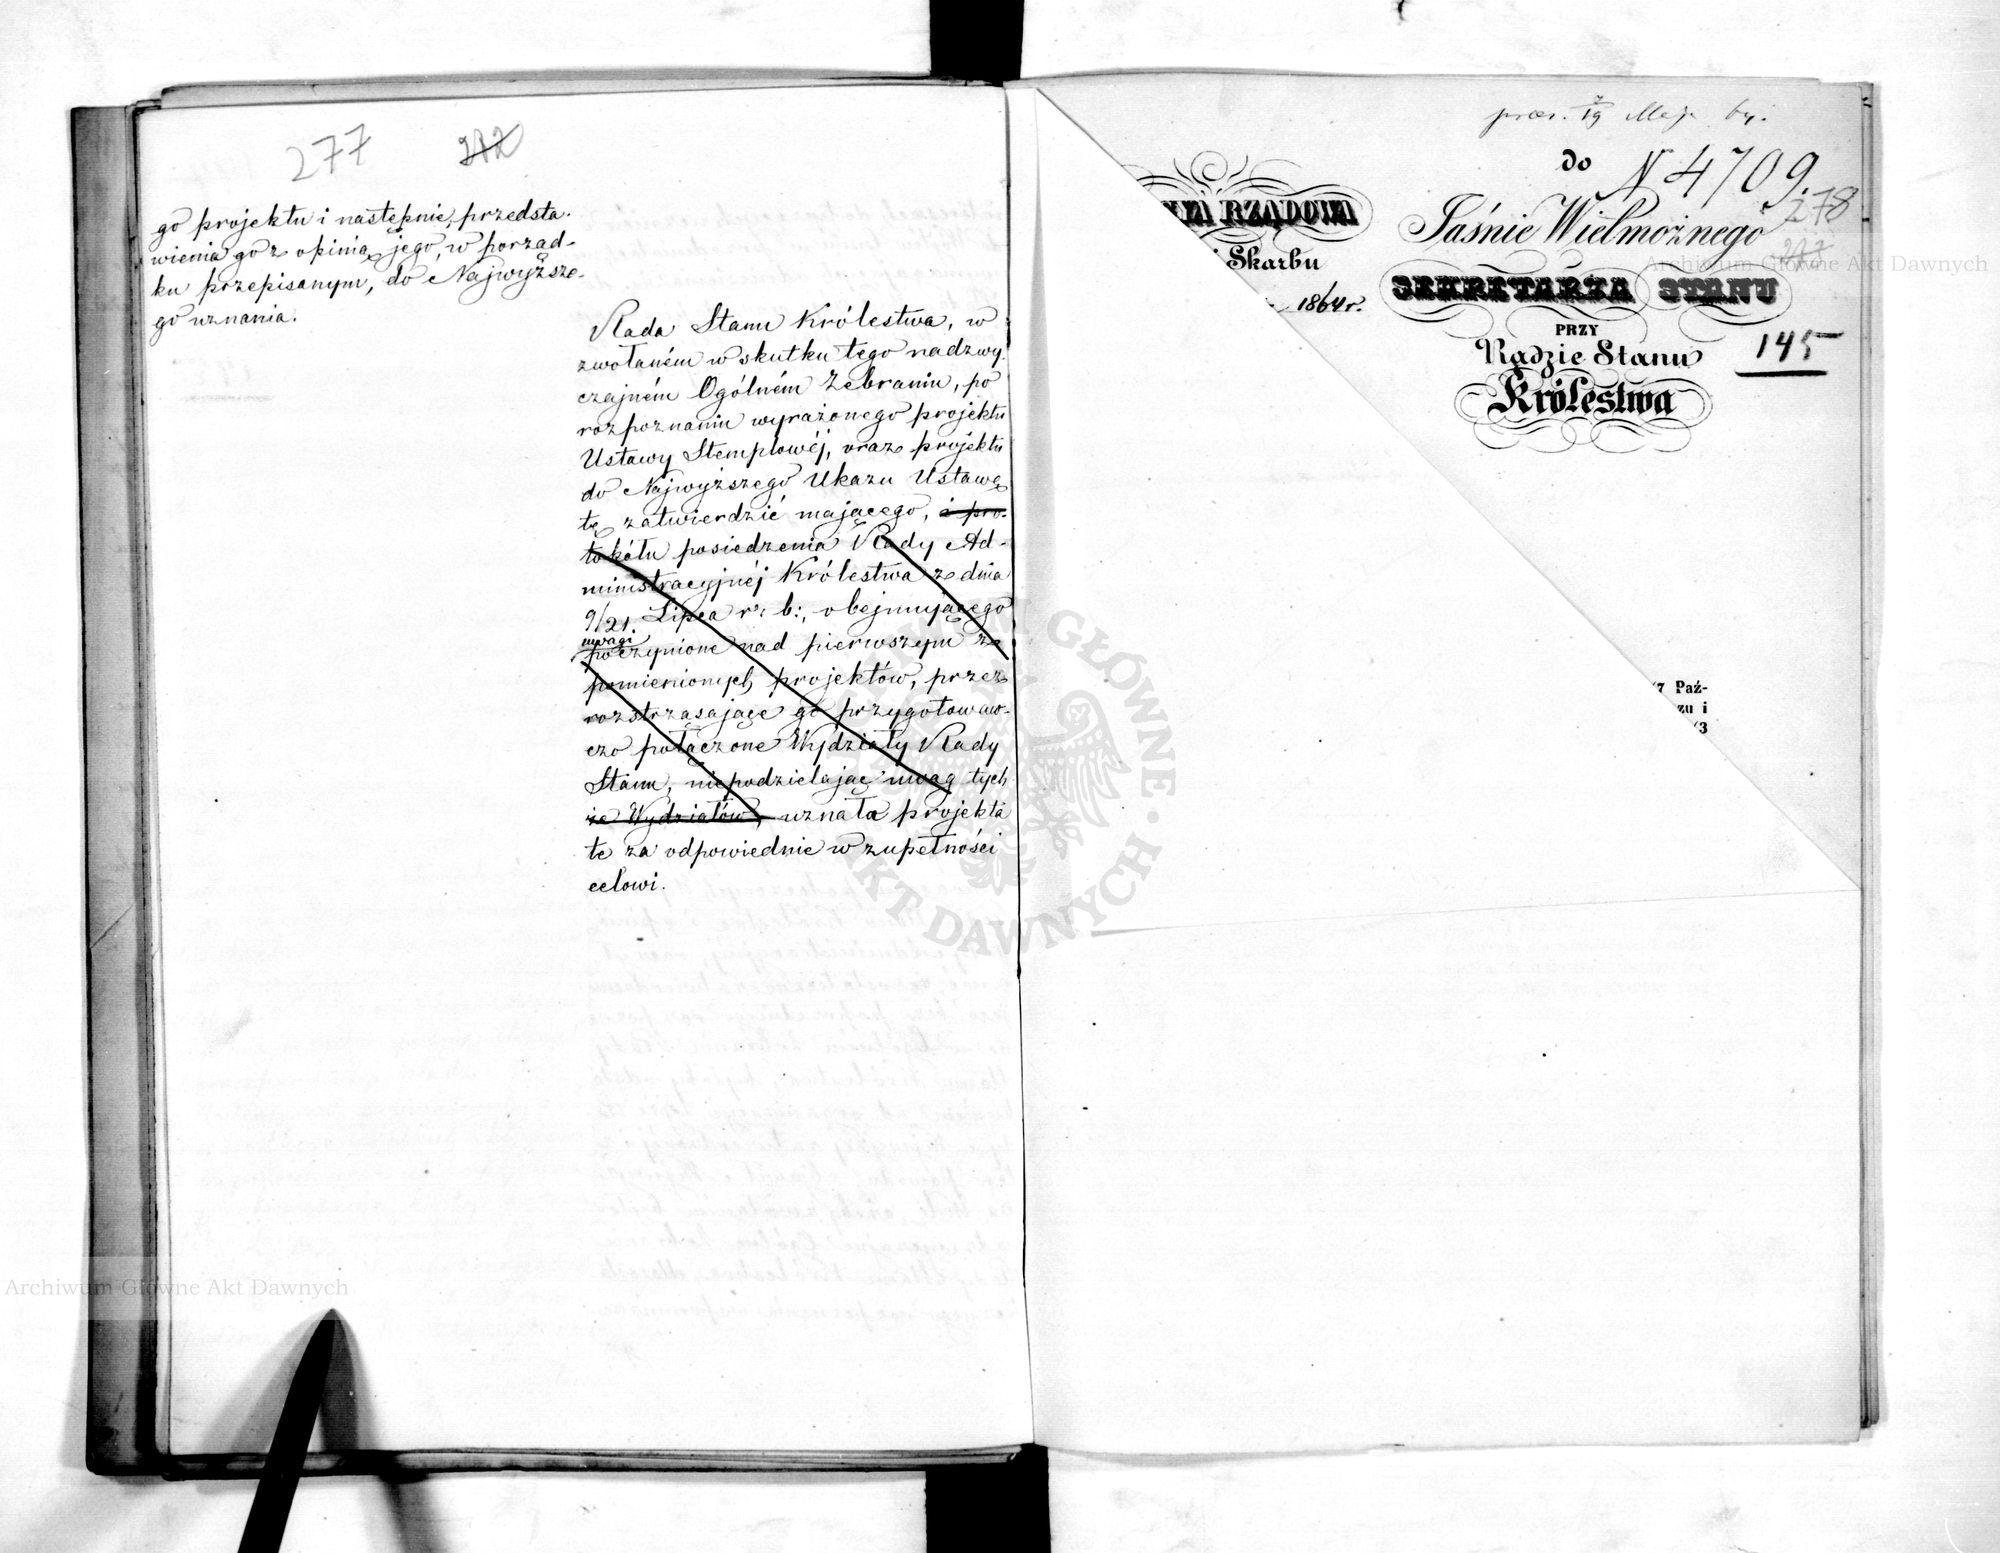 277 272
go projektu i następnie, przedsta-
wienia go z opinią jego, w porząd-
ku przepisanym, do Najwyższe-
go uznania.
Rada Stanu Królestwa, w
zwołaném w skutku tego nadzwy-
czajném Ogólném Zebraniu, po
rozpoznaniu wyrażonego projektu
Ustawy Stemplowéj, oraz projektu
do Najwyższego Ukazu Ustawę
tę zatwierdzić mającego, i pro-
tokółu posiedzenia Rady Ad-
ministracyjnéj Królestwa z dnia
9/21 Lipca r. b:, obejmującego
uwagi
poczynione nad pierwszym z
pomienionych projektów, przez
rozstrząsające go przygotowaw-
czo połączone Wydziały Rady
Stanu, niepodzielając uwag tych
że Wydziałów, uznała projekta
te za odpowiednie w zupełności
celowi.
præs. 7/19 Maja 64.
do N 4709.
278
Jaśnie Wielmożnego
SEKRETARZA STANU
PRZY
Radzie Stanu
Królestwa
145
RZĄDOWA
i Skarbu
1864 r.
7 Paź-
zu i
/3
Archiwum Główne Akt Dawnych
ARCHIWUM GŁÓWNE AKT DAWNYCH
Archiwum Główne Akt Dawnych